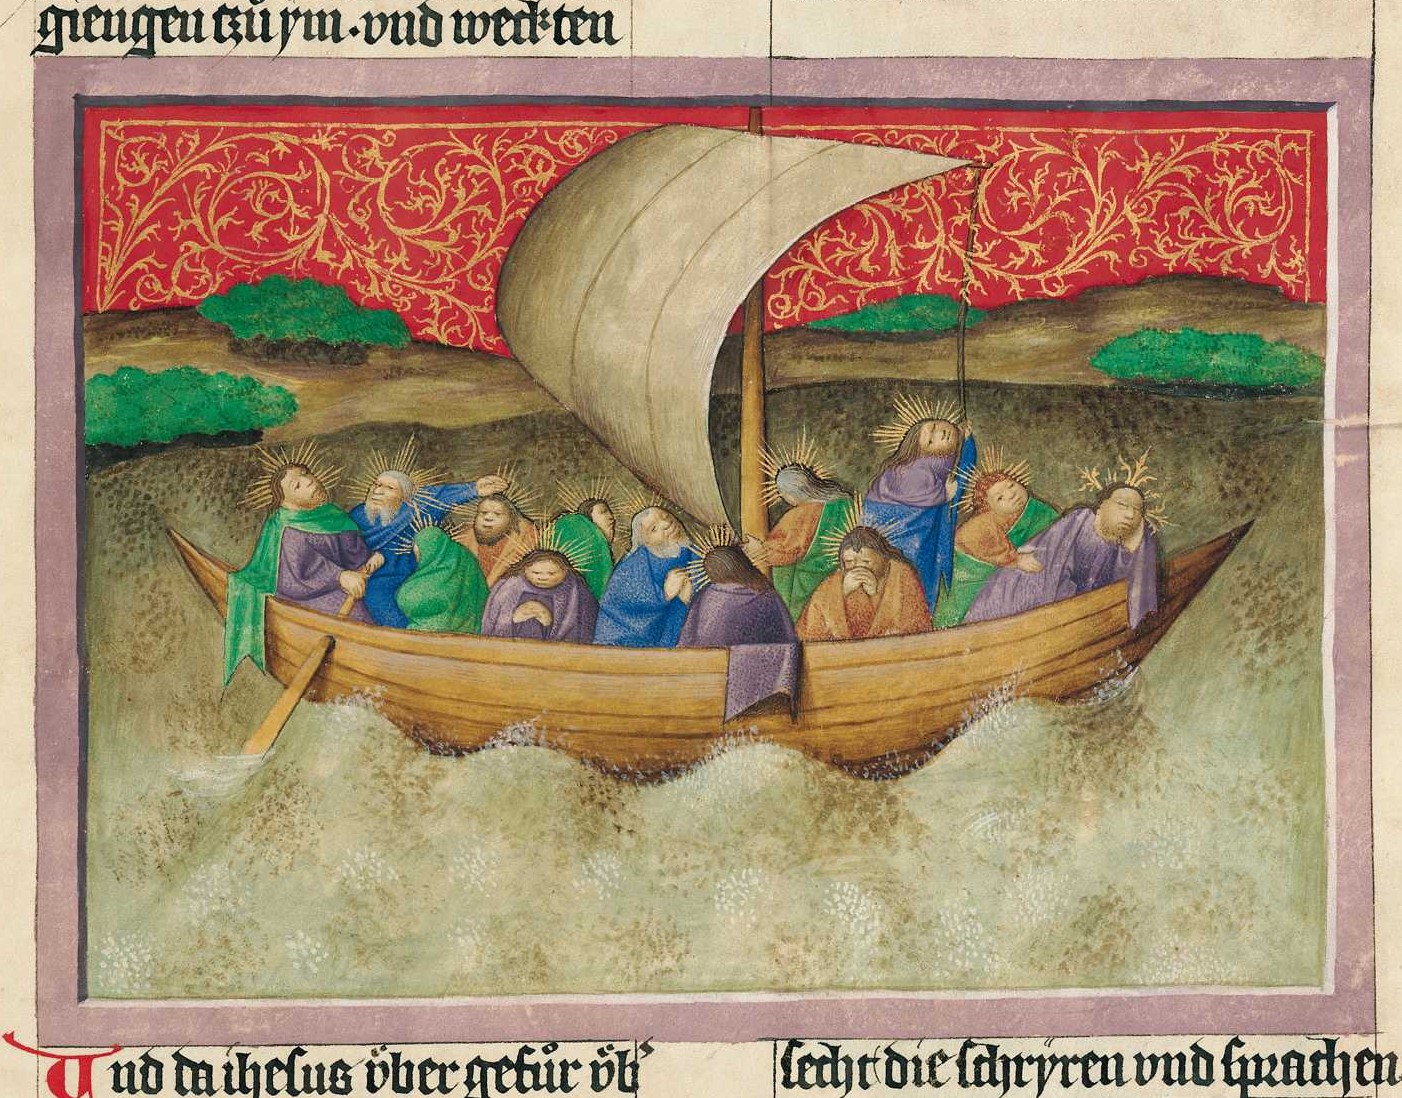 giengen tzů ym · vnd weckten
Und da ihesus v̈ber gefůr v̈b
secht die schrÿren vnd sprachen